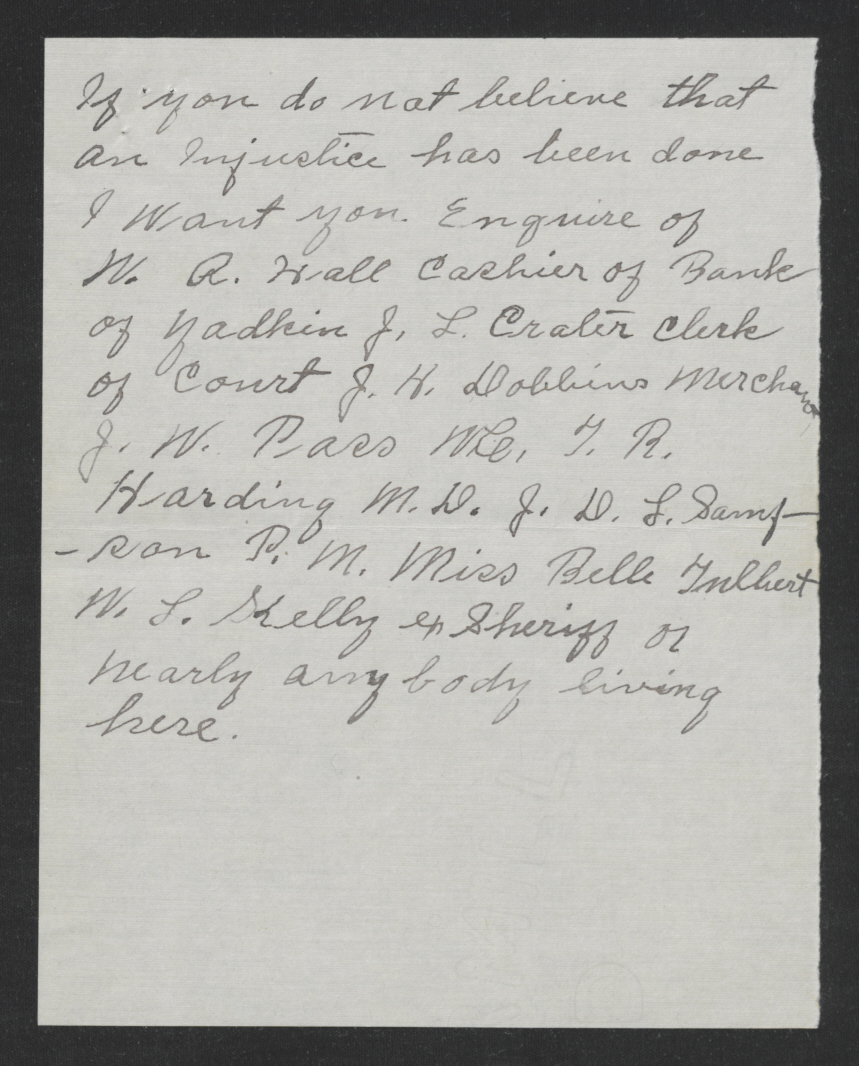 If you do not believe that
an Injustice has been done
I Want you. Enquire of
W. A. Hall Cashier of Bank
of Yadkin J. L. Crater clerk
of Court J. H. Dobbins Merchant
J. W. Pass T. R.
Harding M.D. J. D. L. Samp-
-son P. M. Miss Belle Tulbert
W. L. Kelly ex Sheriff or
nearly any body living
here.